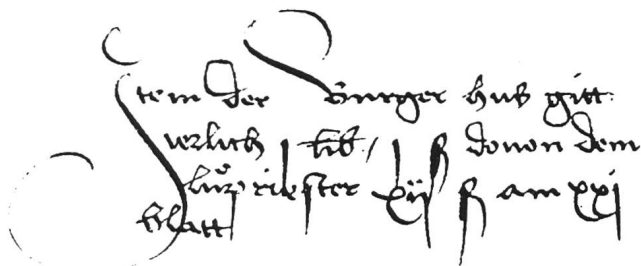 Item der Burger hus gitt
Jerlich lib. j ß douon dem
lütpriester xij ß am xxj
blatt